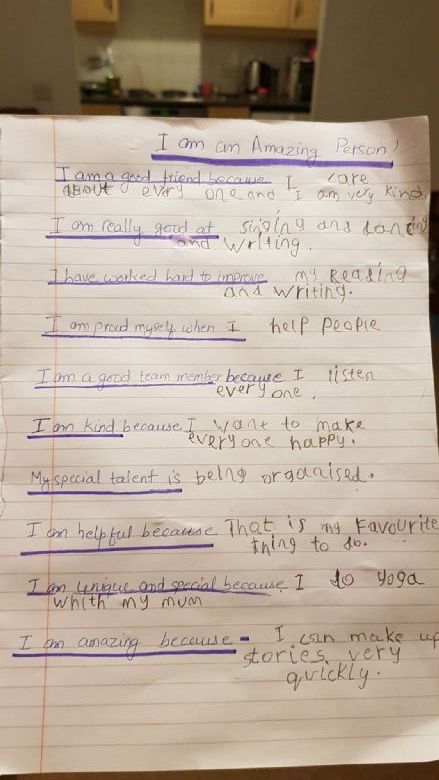 I am an Amazing Person!
I am a good friend because I care
about every one and I am very kind
I am really good at singing and dancing
and writing.
I have worked hard to improve my Reading
and writing.
I am proud myself when I help people
I am a good team member because I listen
every one.
I am kind because I want to make
every one happy.
My special talent is being organised.
I am helpful because That is my Favourite
thing to do.
I am unique and special because I do yoga
whith my mum
I am amazing because - I can make up
stories very
quickly.